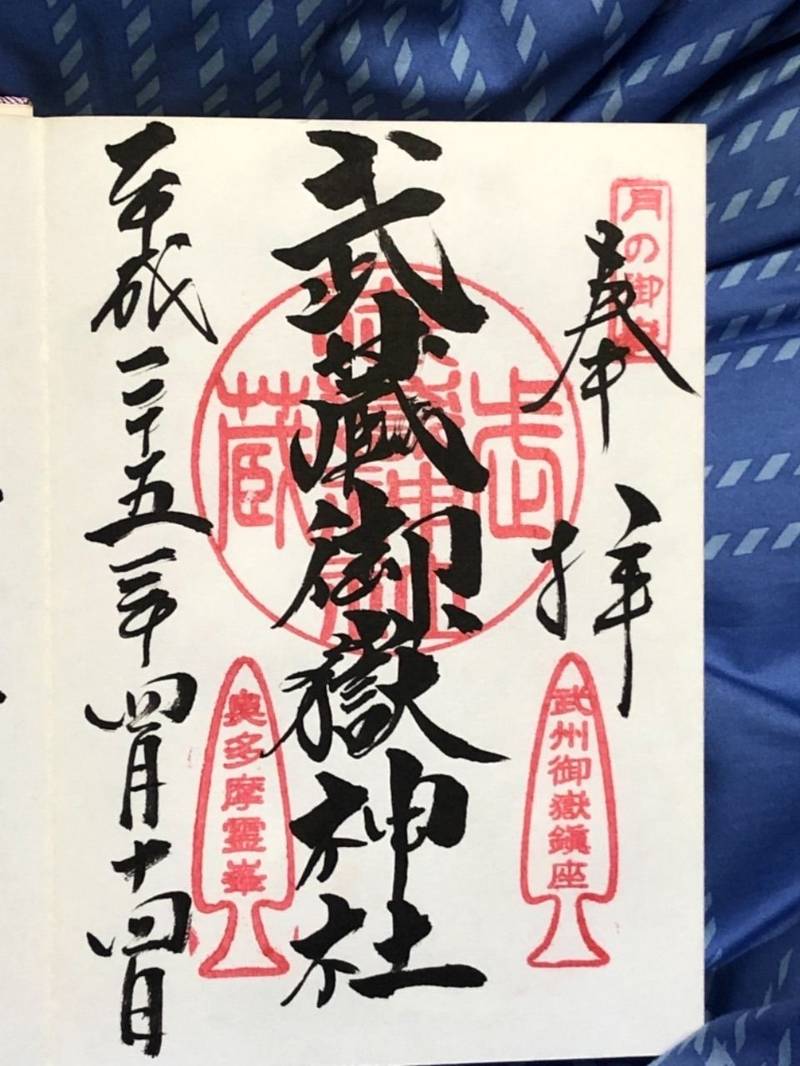 月の御嶽
奉拝
武州御嶽鎮座
武蔵御嶽神社
武蔵
奥多摩霊峯
平成二十五年四月十四日